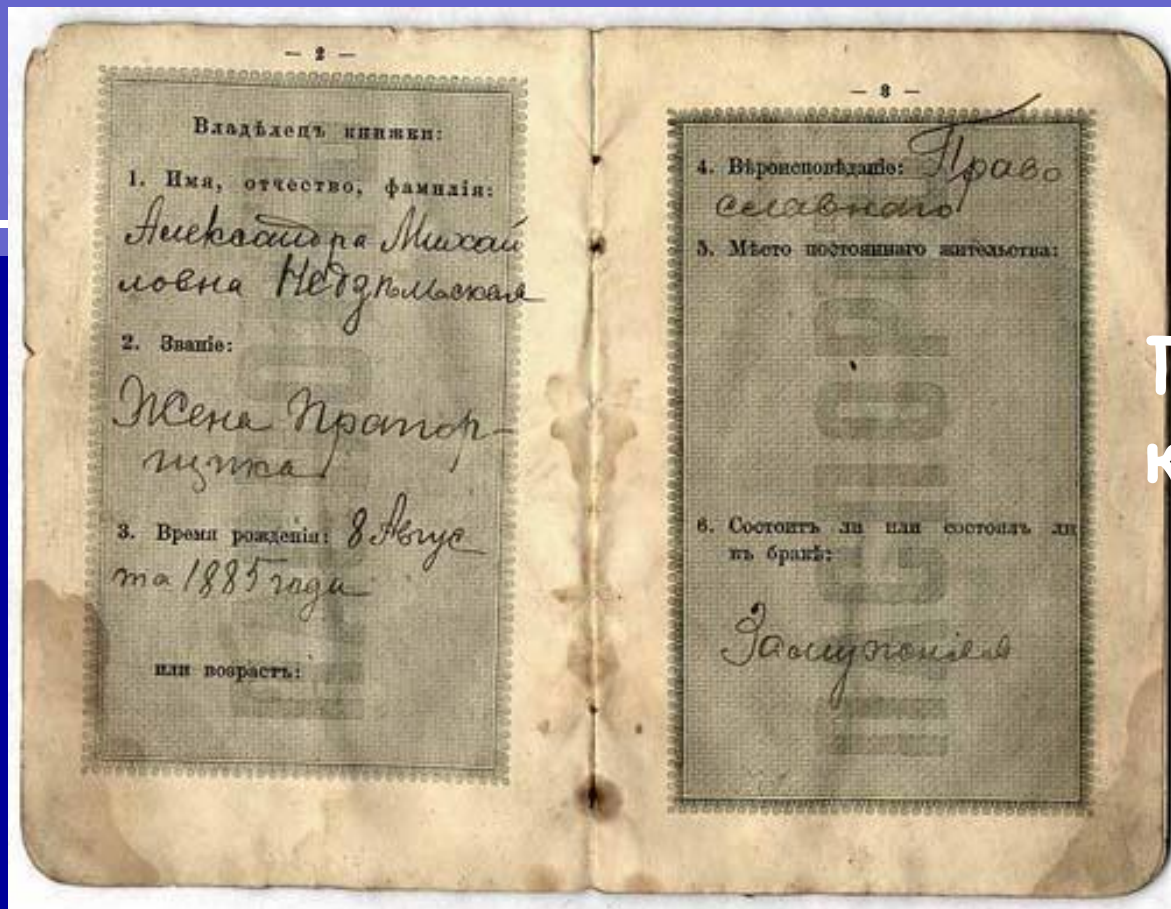 — 2 —
Владѣлецъ книжки:
1. Имя, отчество, фамилія:
Александра Михай
ловна
2. Званіе:
Жена Прапор-
щика
3. Время рожденія: 8 Авгус
та 1885 года
или возрастъ:
— 3 —
4. Вѣроисповѣданіе: Право
славнаго
5. Мѣсто постояннаго жительства:
6. Состоитъ ли или состоялъ ли
въ бракѣ:
Замужняя
Т
к